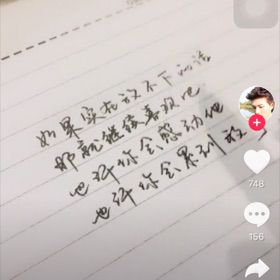 如果实在放不下的话
那就继续喜欢吧
也许你会感动他
也许你会累到放
748
156